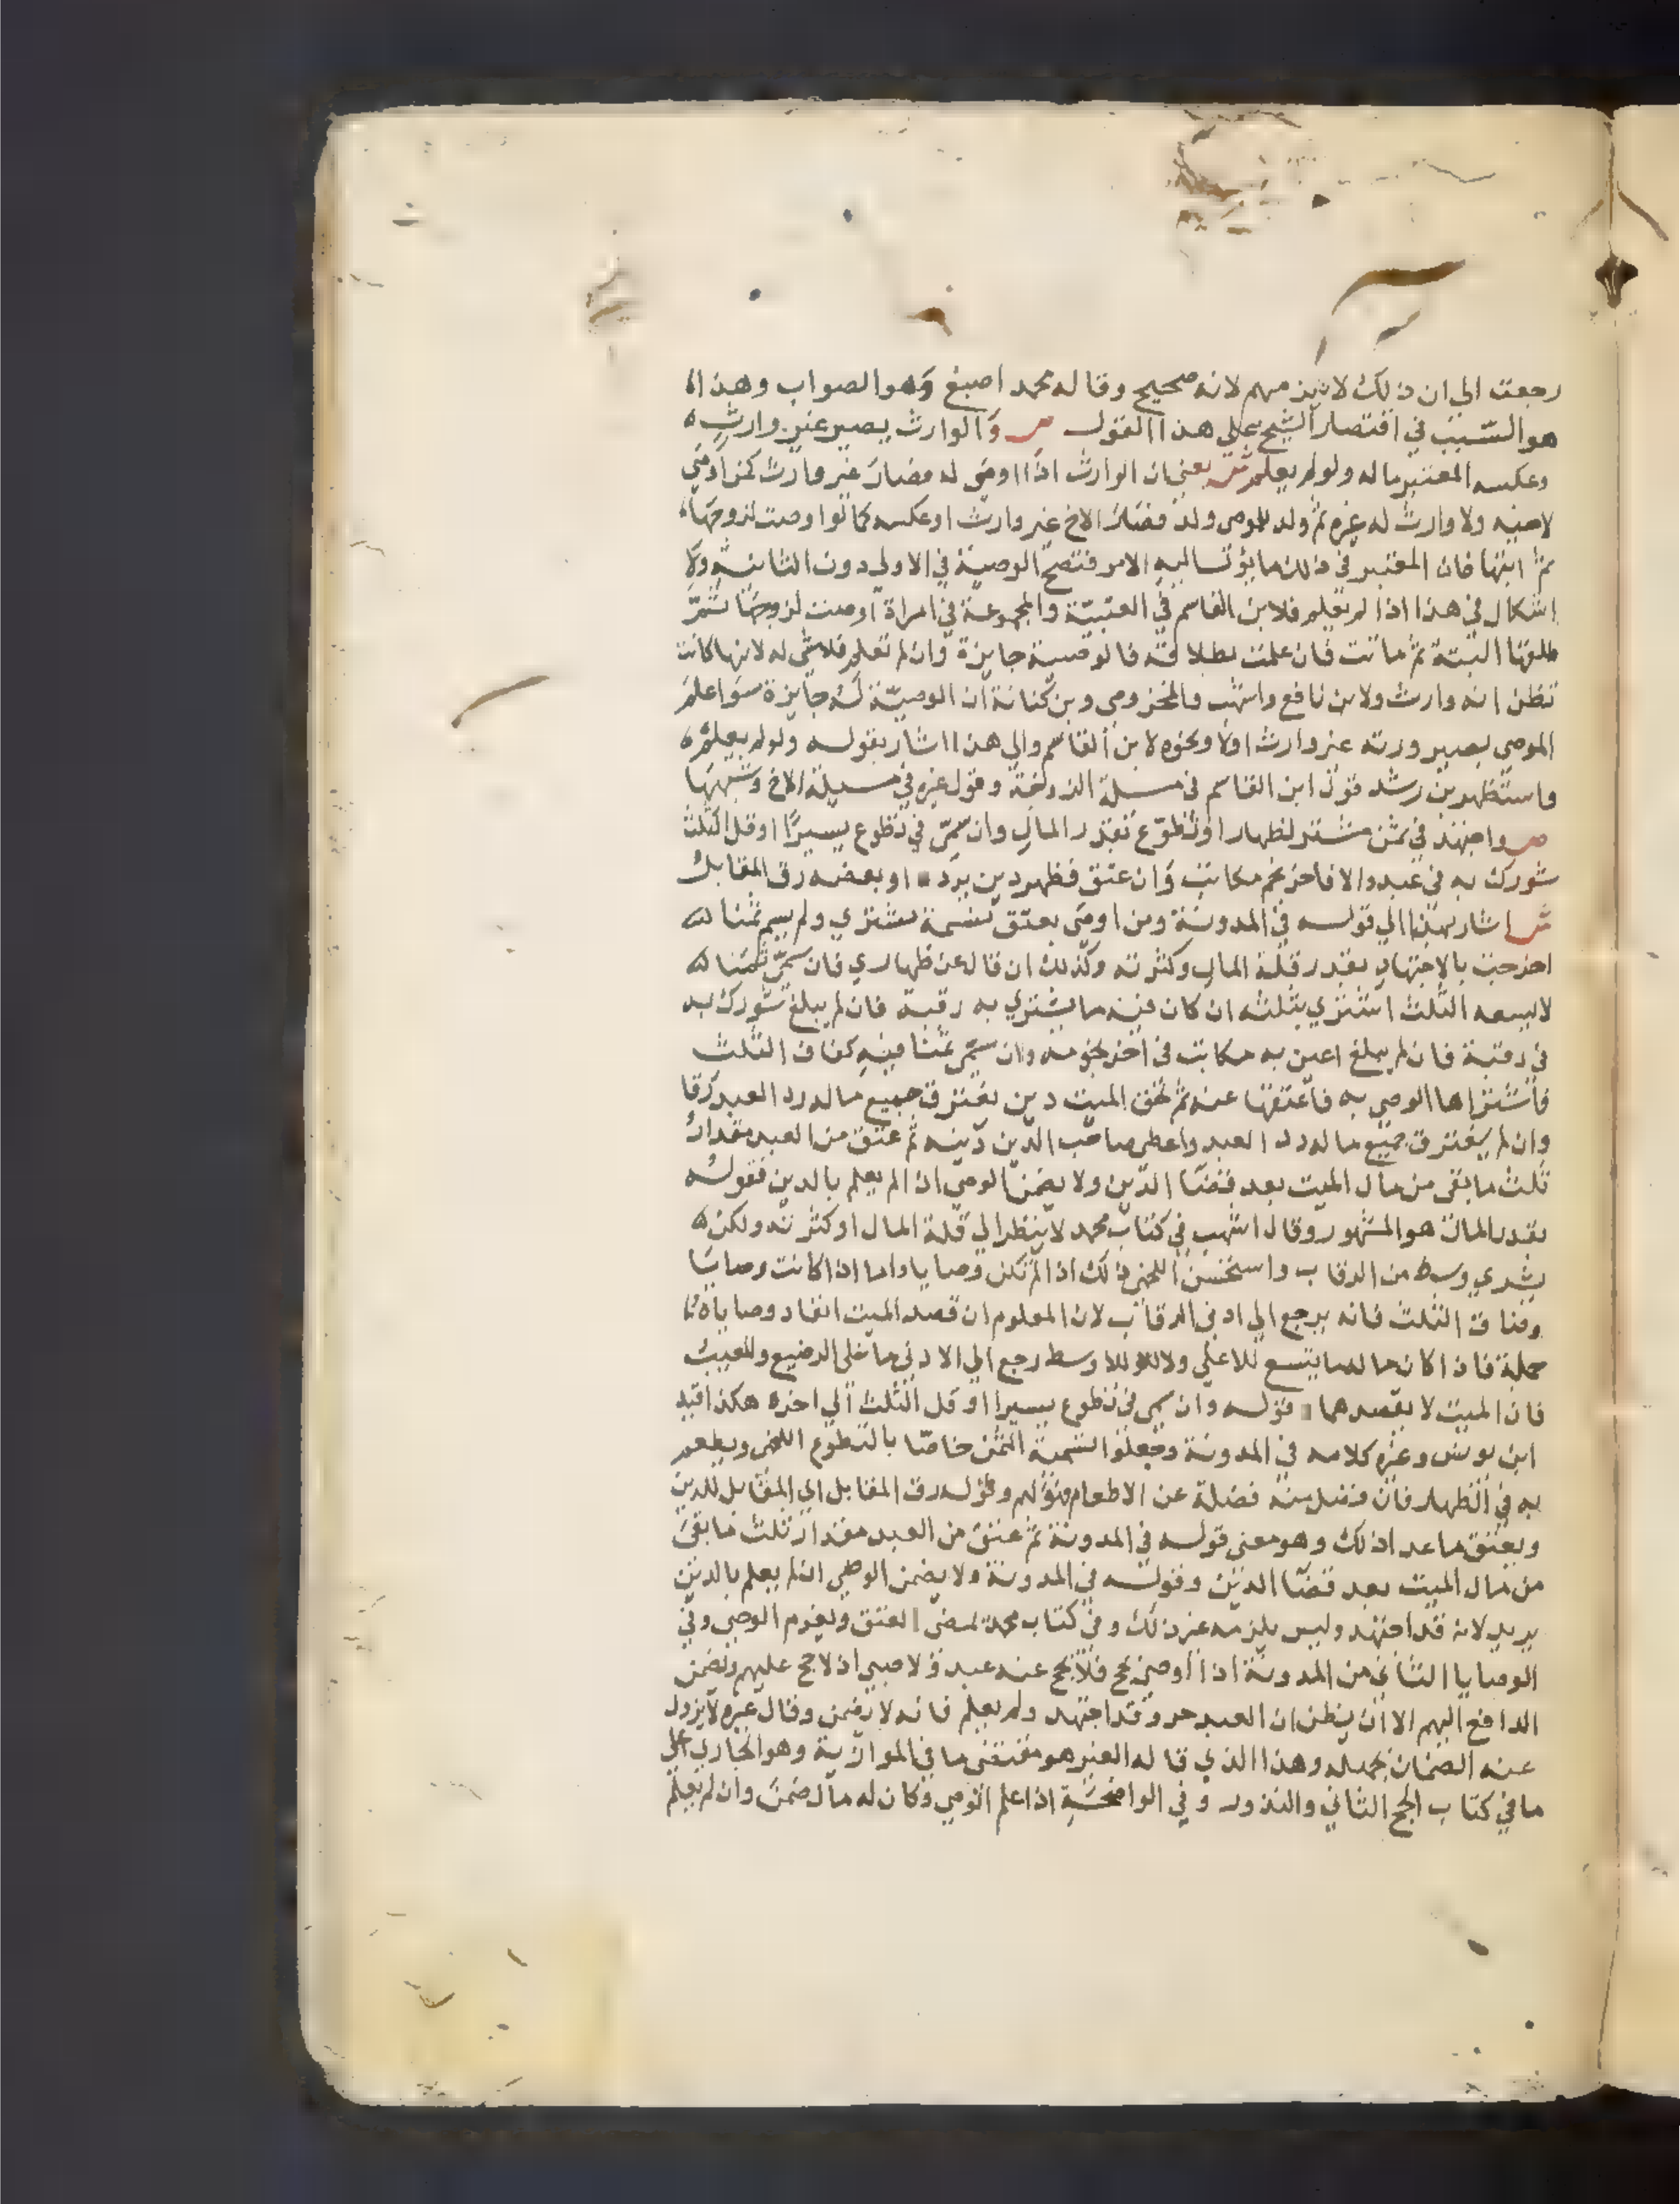 رجعت الى ان ذلك لا ينهم لانه صحيح وقاله محمد اصبغ وهو الصواب وهذا
هو السبب في اقتصار الشيخ على هذا القول ص والوارث يصير غير وارث
وعكسه المعتبر ماله ولو لم يعلم ش يعني ان الوارث اذا اوصى له فصار غير وارث كمن اوصى
لاخيه ولا وارث له غيره ثم ولد للموصى ولد فصار الاخ غير وارث او عكسه كما لو اوصت لزوجها
ثم ابنها فان المعتبر في ذلك ما يؤل اليه الامر فتصح الوصية في الاولى دون الثانية ولا
اشكال في هذا اذا لم يعلم فلابن القاسم في العتبية والمجموعة في امراة اوصت لزوجها ثم
طلقها البتة ثم ماتت فان علمت بطلاقه فالوصية جايزة وان لم تعلم فلا شي له لانها كانت
تظن انه وارث ولابن نافع واشهب والمخزومي وبن كنانة ان الوصية له جايزة سوا علم
الموصي بصيرورته غير وارث اولا ونحوه لابن القاسم والى هذا اشار بقوله ولو لم يعلم
واستظهر بن رشد قول ابن القاسم في مسلة الزوجة وقول غيره في مسيلة الاخ وشبهها
ص واجتهد في ثمن مشتر لظهار او تطوع بقدر المال وان سمى في تطوع يسيرا او قل الثلث
شورك به في عبد والا فاخر نجم مكاتب وان عتق فظهر دين يرد او بعضه رق المقابل
ش اشار بهذا الي قوله في المدونة ومن اوصى بعتق نسمة تشتري ولم يسم ثمنا
اخرجت بالاجتهاد بقدر قلة المال وكثرته وكذلك ان قال عن ظهاري فان سمى ثمنا
لا يسعه الثلث اشتري بثلثه ان كان فيه ما يشتري به رقبة فان لم يبلغ شورك به
في رقبة فان لم يبلغ اعين به مكاتب في اخر نجومه وان سمى ثمنا فيه كفاف الثلث
فاشتراها الوصي به فاعتقها عنه ثم لحق الميت دين يغترق جميع ماله رد العبد رقا
وان لم يغترق جميع ماله رد العبد واعطى صاحب الدين دينه ثم عتق من العبد مقدار
ثلث ما بقى من مال الميت بعد قضا الدين ولا يضمن الوصي ان لم يعلم بالدين فقوله
بقدر المال هو المشهور وقال اشهب في كتاب محمد لا ينظر الي قلة المال او كثرته ولكن
يشري وسط من الرقاب واستحسن اللخمي ذلك اذا لم تكن وصايا واما اذا كانت وصايا
وضاق الثلث فانه يرجع الي ادنى الرقاب لان المعلوم ان قصد الميت انفاد وصاياه
جملة فاذا كان ماله ما يتسع للاعلى ولا للاوسط رجع الي الادنى ما خلى الرضيع والمعيب
فان الميت لا يقصدهما قوله وان سمى في تطوع يسيرا او قل الثلث الي اخره هكذا قيد
ابن يونس وغيره كلامه في المدونة وجعلوا تسمية الثمن خاصا بالتطوع اللخمي ويطعم
به في الظهار فان فضل منه فضلة عن الاطعام وقوله رق المقابل اي المقابل للدين
ويعتق ما عدا ذلك وهو معنى قوله في المدونة ثم عتق من العبد مقدار ثلث ما بقى
من مال الميت بعد قضا الدين وقوله في المدونة ولا يضمن الوصي ان لم يعلم بالدين
يريد لانه قد اجتهد وليس يلزمه غير ذلك وفي كتاب محمد يمضى العتق ويغرم الوصي وفي
الوصايا الثاني من المدونة اذا اوصى بحج فلا يحج عنه عبد ولا صبي اذ لا حج عليهم ويضمن
الدافع اليهم الا ان يظن ان العبد حر وقد اجتهد ولم يعلم فانه لا يضمن وقال غيره لا يزول
عنه الضمان بجهله وهذا الذي قاله الغير هو مقتضى ما في الموازية وهو الجاري على
ما في كتاب الحج الثاني والنذور وفي الواضحة اذا علم الوصي وكان له مال ضمن وان لم يعلم